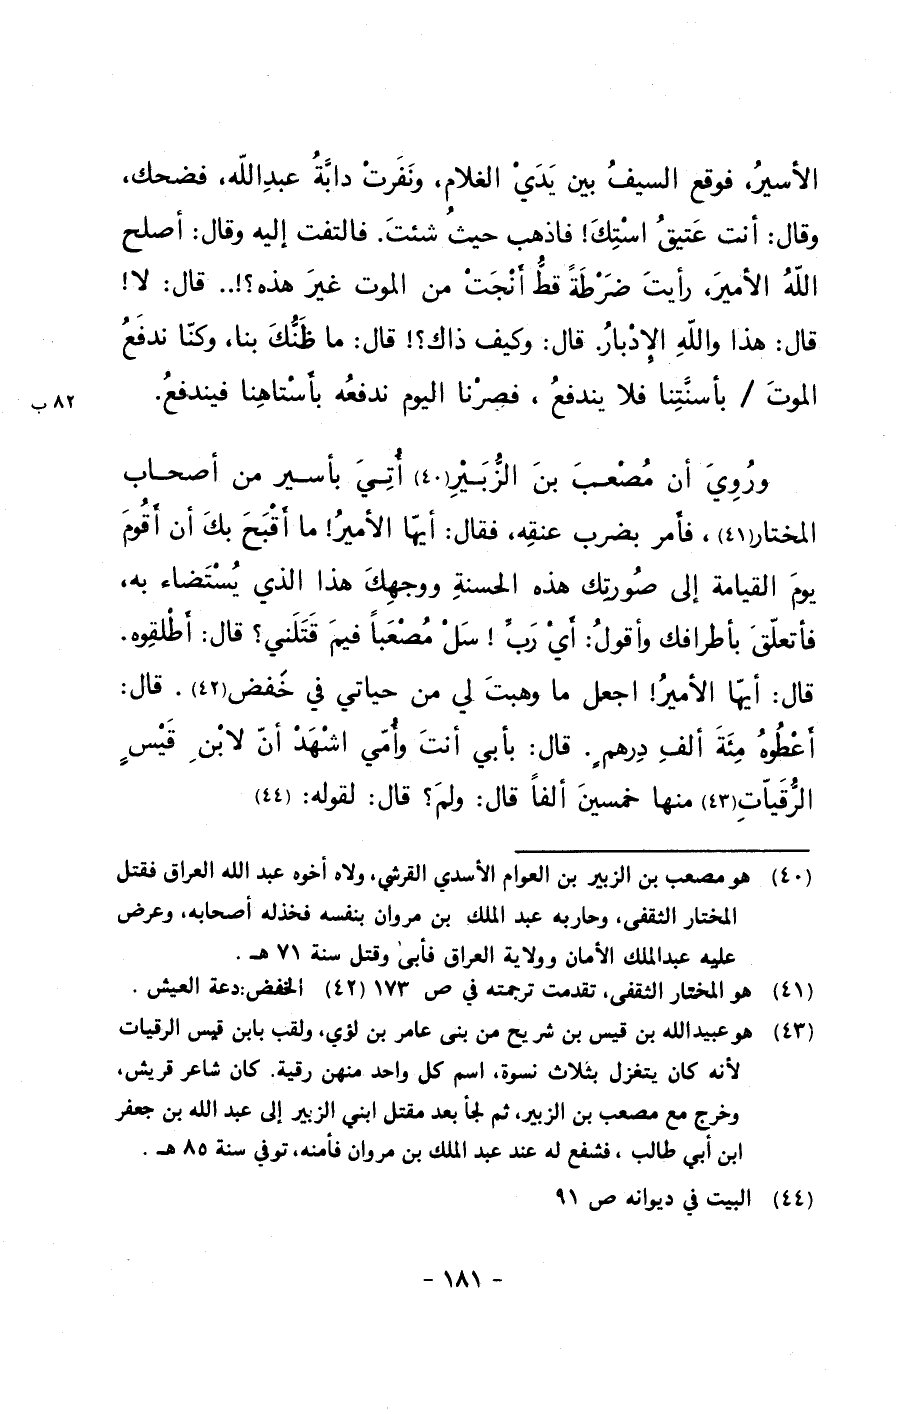 الأسيرُ، فوقع السيفُ بين يَدَيْ الغلام، ونَفَرتْ دابَّةُ عبدِاللّه، فضحك،
وقال: أنت عَتيقُ اسْتِكَ! فاذهب حيثُ شئتَ. فالتفت إليه وقال: أصلح
اللّهُ الأميرَ، رأيتَ ضَرْطَةً قطُّ أَنْجَتْ من الموت غيرَ هذه؟!.. قال: لا!
قال: هذا واللّهِ الإِدْبارُ. قال: وكيف ذاك؟! قال: ما ظَنُّكَ بنا، وكنّا ندفَعُ
الموتَ / بأسنَّتِنا فلا يندفعُ ، فصِرْنا اليوم ندفعُه بأَسْتاهِنا فيندفعُ.
٨٢ ب
ورُوِيَ أن مُصْعـبَ بنَ الزُّبَيْرِ(٤٠) أُتِـيَ بأسـير من أصحـاب
المختار(٤١) ، فأمر بضرب عنقِه، فقال: أيهّا الأميرُ! ما أَقْبَحَ بكَ أن أَقُومَ
يومَ القيامة إلى صُورتِك هذه الحسنةِ ووجهِكَ هذا الذي يُسْتَضاء به،
فأتعلّقَ بأطرافك وأقولُ: أيْ رَبِّ ! سَلْ مُصْعَباً فيمَ قَتَلَني؟ قال: أَطْلقِوه.
قال: أيهّا الأميرُ! اجعل ما وهبتَ لي من حياتي في خَفض(٤٢) . قال:
أَعْطُوهُ مِئَةَ ألفِ دِرهمٍ. قال: بأبي أنتَ وأُمّي اشْهَدْ أنّ لابْنِ قَيْسٍ
الرُّقَيّاتِ(٤٣) منها خمسينَ ألفاً قال: ولمَ؟ قال: لقوله: (٤٤)
(٤٠) هو مصعب بن الزبير بن العوام الأسدي القرشي، ولاه أخوه عبد الله العراق فقتل
المختار الثقفى، وحاربه عبد الملك بن مروان بنفسه فخذله أصحابه، وعرض
عليه عبدالملك الأمان وولاية العراق فأبىٰ وقتل سنة ٧١ هـ .
(٤١) هو المختار الثقفى، تقدمت ترجمته في ص ١٧٣ (٤٢) الخفض:دعة العيش .
(٤٣) هو عبيدالله بن قيس بن شريح من بنى عامر بن لؤي، ولقب بابن قيس الرقيات
لأنه كان يتغزل بثلاث نسوة، اسم كل واحد منهن رقية. كان شاعر قريش،
وخرج مع مصعب بن الزبير، ثم لجأ بعد مقتل ابني الزبير إلى عبد الله بن جعفر
ابن أبي طالب ، فشفع له عند عبد الملك بن مروان فأمنه، توفي سنة ٨٥ هـ .
(٤٤) البيت في ديوانه ص ٩١
- ١٨١ -